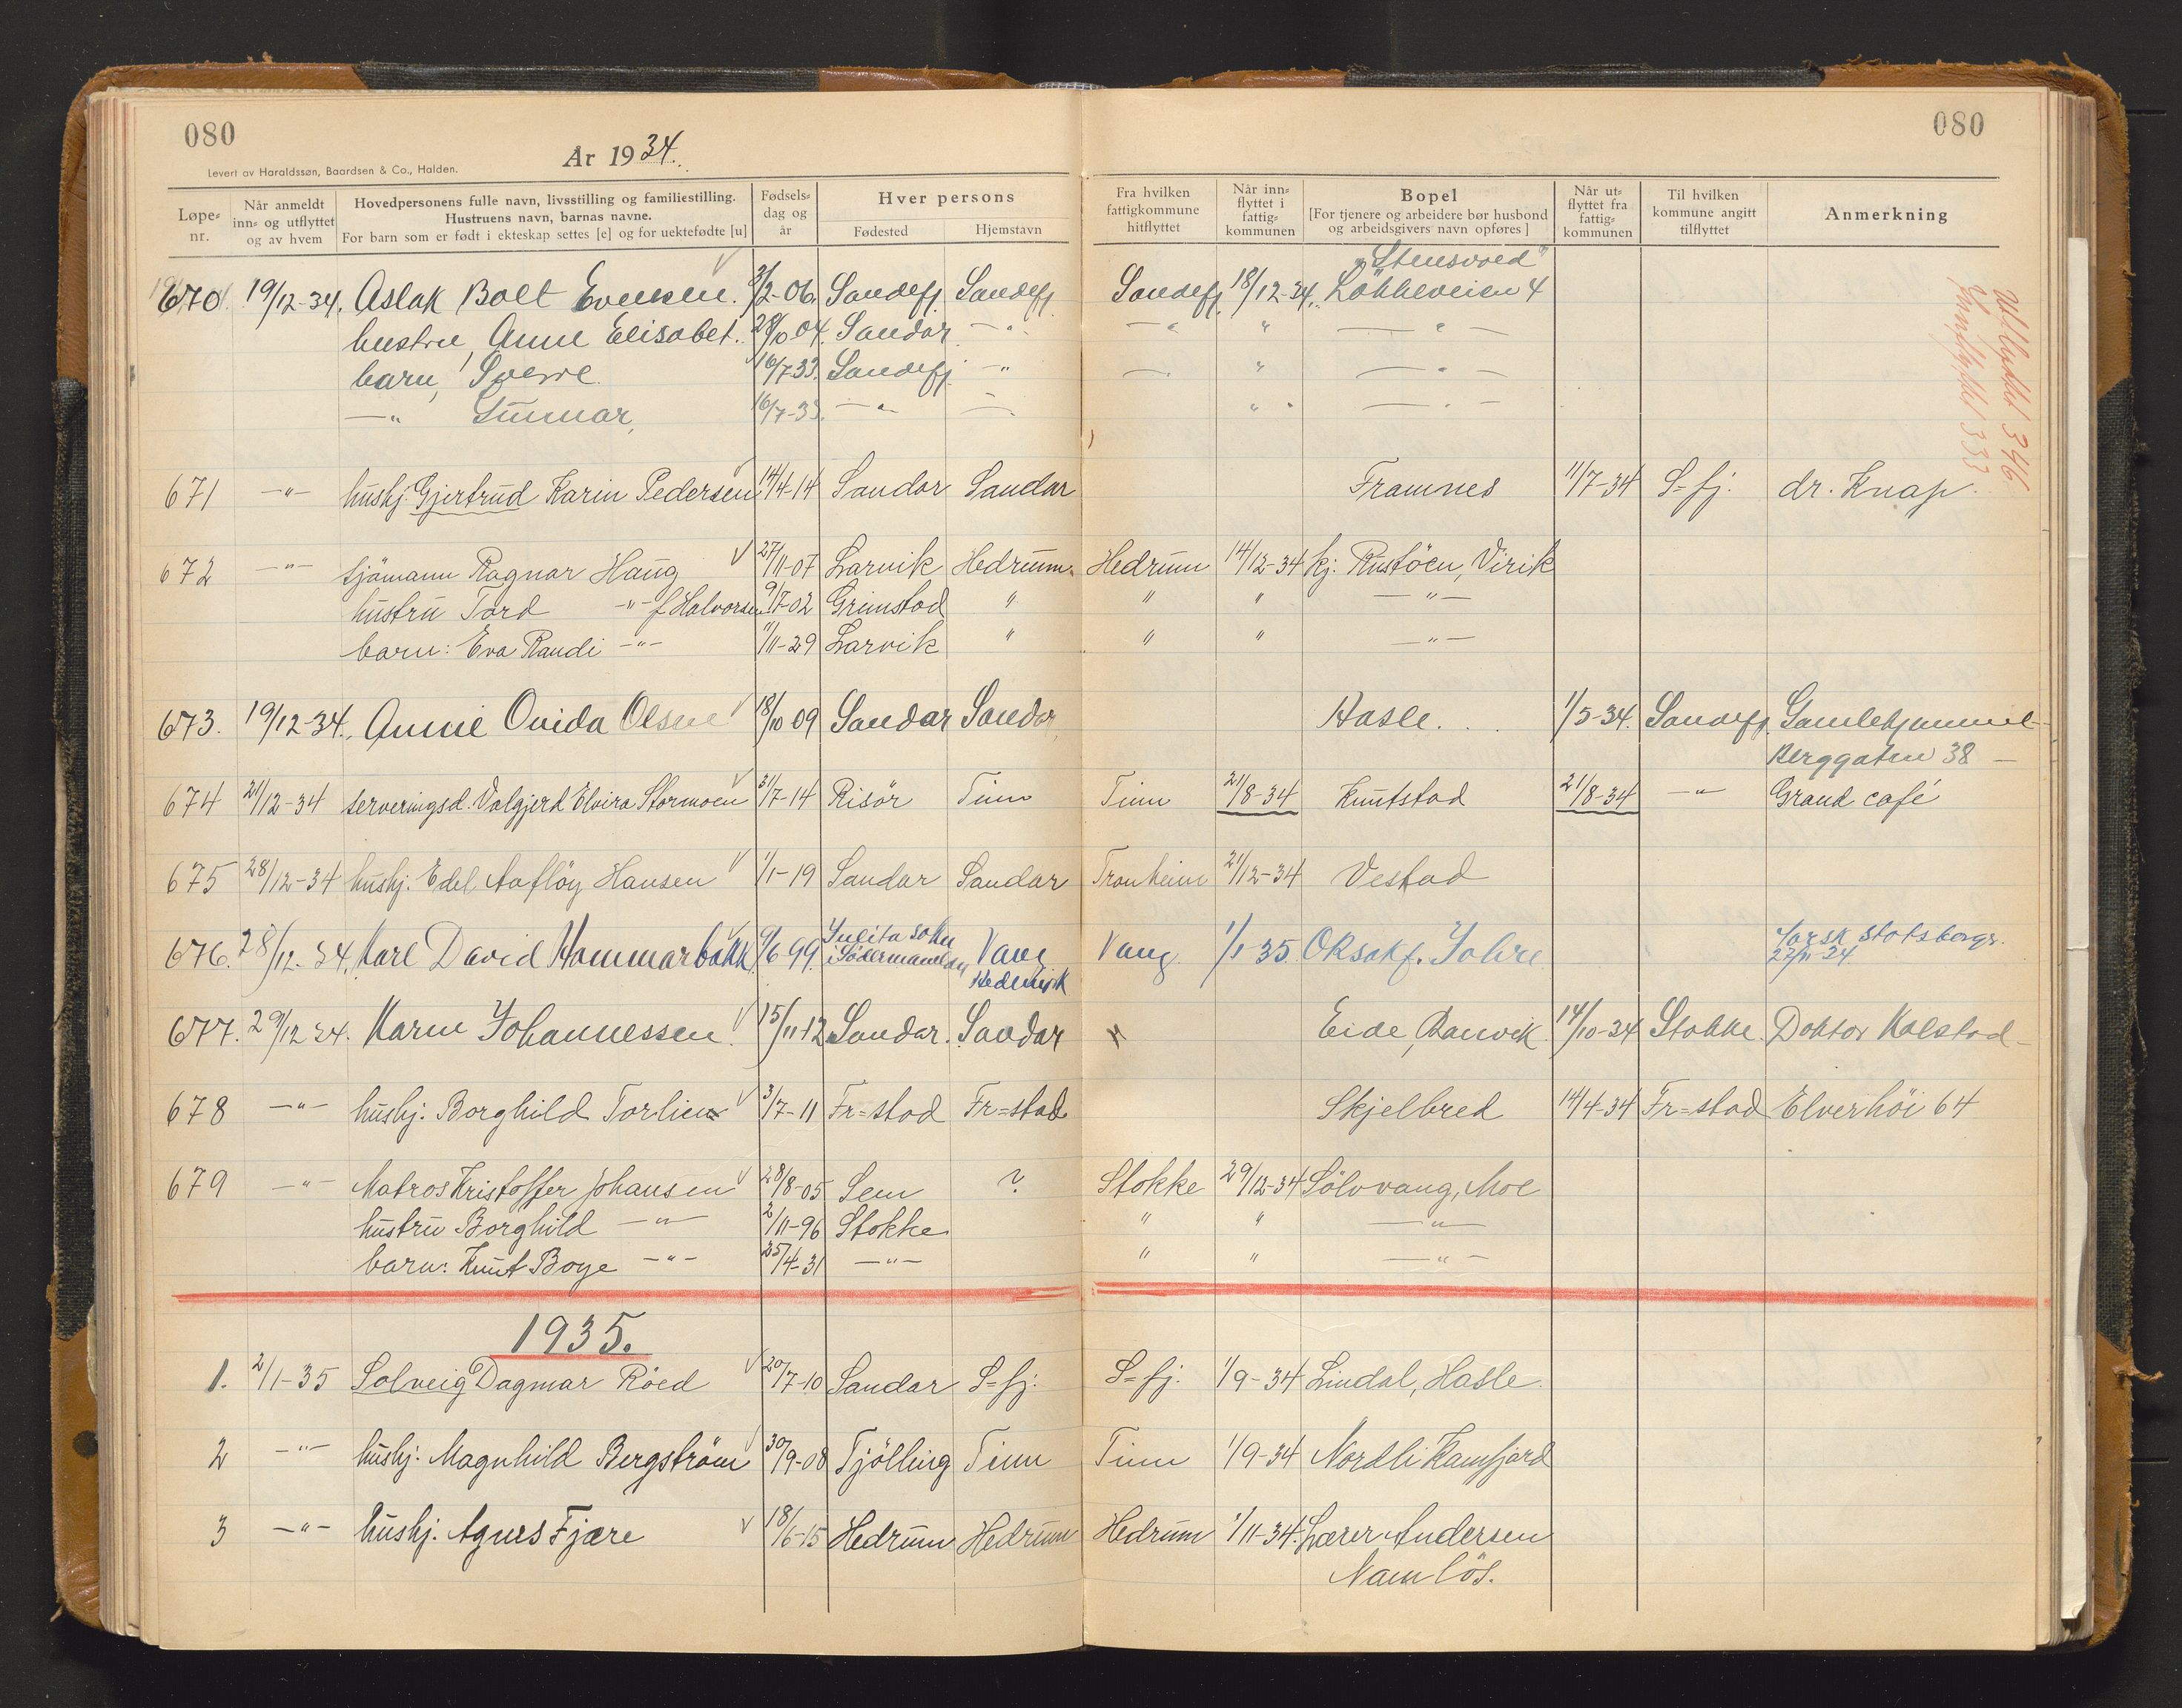 080
080
År 1934.
Levert av Haraldssøn, Baardsen & Co., Halden.
Løpe-nr.
Når anmeldt inn- og utflyttet og av hvem
Hovedpersonens fulle navn, livsstilling og familiestilling.
Hustruens navn, barnas navne.
For barn som er født i ekteskap settes [e] og for uektefødte [u]
Fødsels-dag og år
Hver persons
Fødested
Hjemstavn
Fra hvilken fattigkommune hitflyttet
Når inn-flyttet i fattig-kommunen
Bopel
[For tjenere og arbeidere bør husbond og arbeidsgivers navn opføres]
Når ut-flyttet fra fattig-kommunen
Til hvilken kommune angitt tilflyttet
Anmerkning
670. 19/12-34. Aslak Bolt Evensen. 3/2-06. Sandefj. Sandefj. Sandefj. 18/12-34. Løkkeveien 4
hustru, Anne Elisabet. 28/10 04. Sandar -"- -"- " -"-
barn, Sverre 16/7-33. Sandefj. -"- - " -"-
-"- Gunnar, 16/7-33. -"- - " -"-
Utflyttet 346
Innflyttet 333
671 -"- hushj. Gjertrud Karin Pedersen 14/4-14 Sandar Sandar Framnes 11/7-34 S-fj. dr. Knap.
672 -"- sjömann Ragnar Haug 27/11-07 Larvik Hedrum Hedrum 14/12-34 kj. Rustöen, Virik
hustru Tord -"- f. Halvorsen 9/7-02 Grimstad " " " -"-
barn: Eva Randi -"- 11/11-29 Larvik " " " -"-
673. 19/12-34. Annie Ovida Olsen 18/10 09 Sandar Sandar Hasle. 1/5-34. Sandefj. Gamlehjemmet
Berggaten 38 -
674 21/12-34 serveringsd. Valgjerd Elvira Stormoen 31/7-14 Risör Tinn Tinn 21/8-34 Knutstad 21/8-34 -"- Grand café
675 28/12-34 hushj. Edel Aaflöy Hansen 1/1-19 Sandar Sandar Tronheim 21/12-34 Vestad
676. 28/12-34. Karl David Hammarbäkk 9/6 99. Julita sokn i Södermanland Vang Hedemark Vang 1/1 35. Jahre Norsk statsborgr. 27/11-34
677. 29/12 34. Karin Johannessen. 15/11-12 Sandar. Sandar Eide, Ranvik. 14/10-34 Stokke. Doktor Kolstad-
678 -"- hushj. Borghild Torlien 3/7-11 Fr=stad Fr=stad Skjelbred 14/4-34 Fr=stad Elverhöi 64
679 -"- Matros Kristoffer Johansen 28/8-05 Sem ? Stokke 29/12-34 Sölvvang, Moe
hustru Borghild -"- 2/11-96 Stokke " " -"-
barn: Knut Boye -"- 25/4-31 -"- " " -"-
1935.
1. 2/1-35 Solveig Dagmar Röed 20/7-10 Sandar S=fj. S=fj. 1/9-34 Lindal, Hasle.
2 -"- hushj. Magnhild Bergström 30/9-08 Tjölling Tinn Tinn 1/9-34 Nordli Kamfjord
3 -"- hushj. Agnes Fjære 18/6-15 Hedrum Hedrum Hedrum 1/11-34. Lærer Andersen
Namlös.